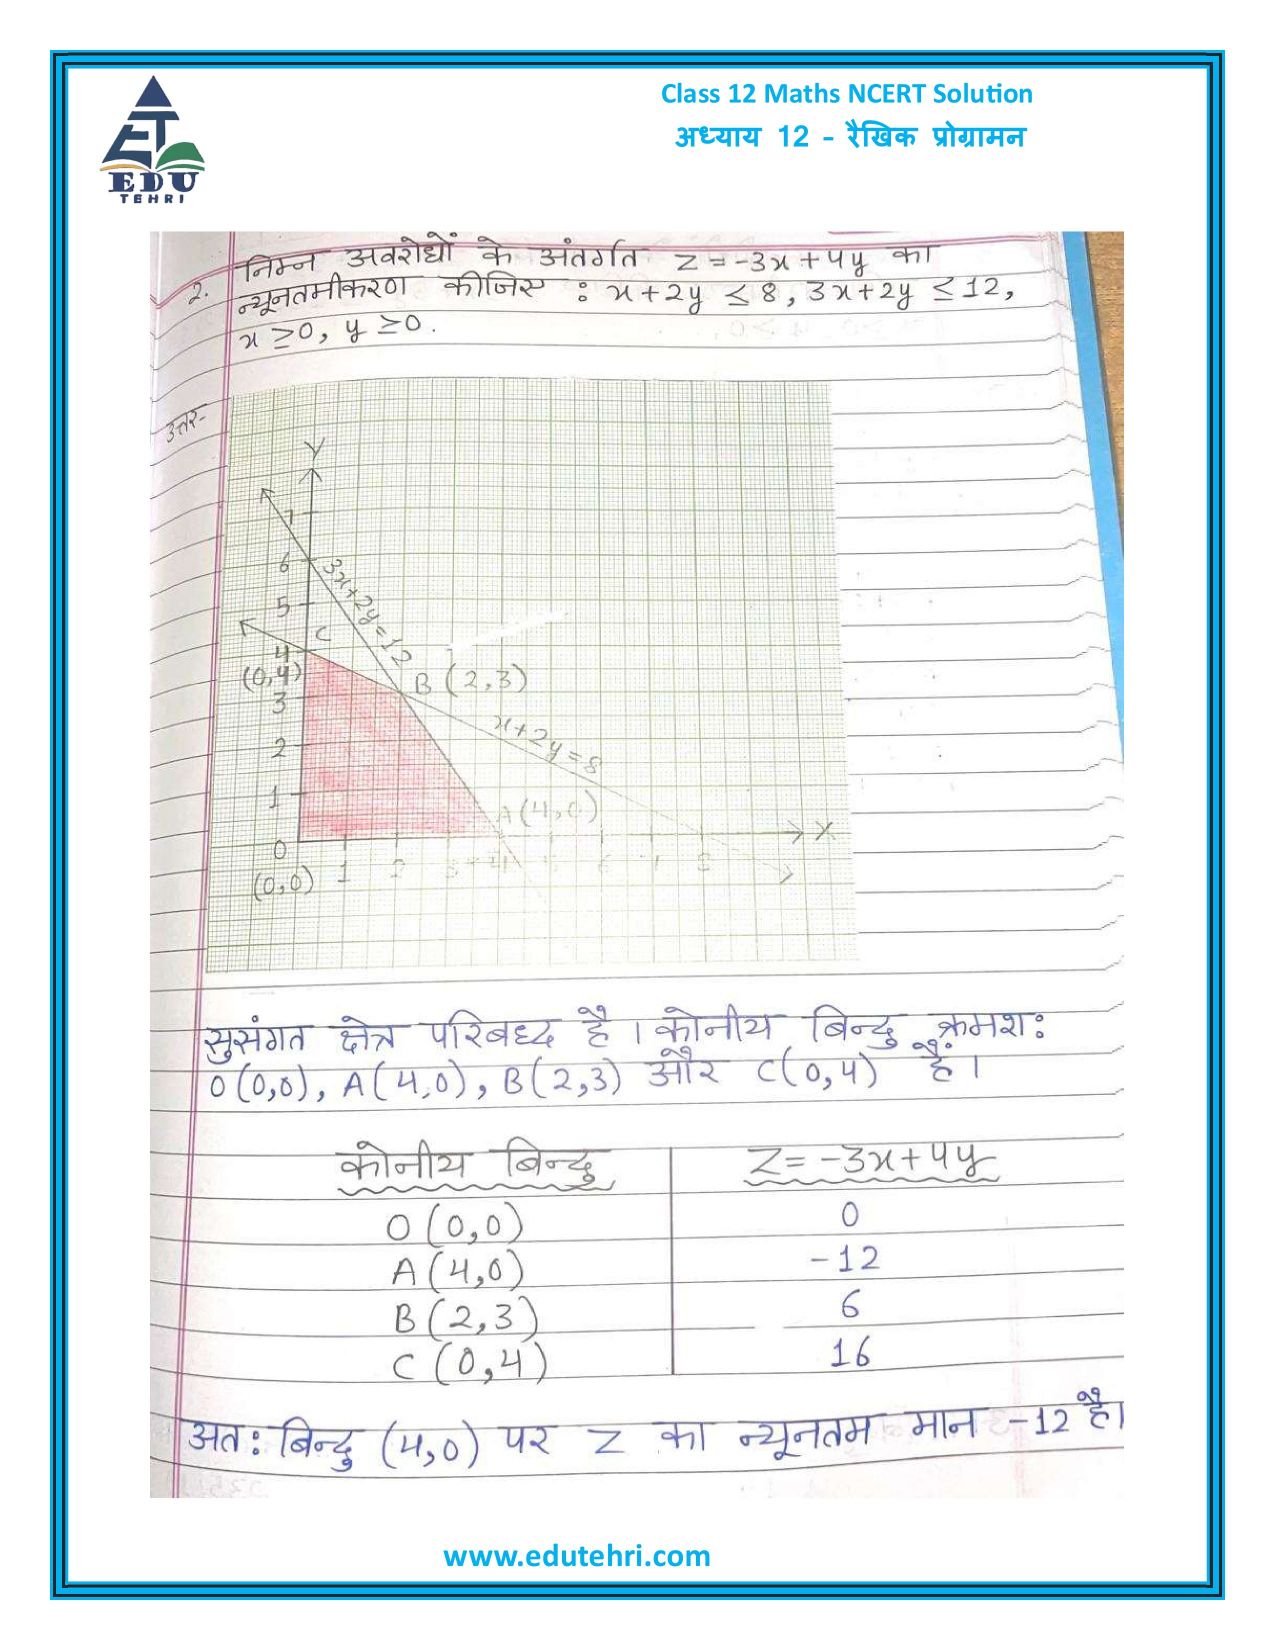 Class 12 Maths NCERT Solution
अध्याय 12 - रैखिक प्रोग्रामन
EDU
TEHRI
2. निम्न अवरोधों के अंतर्गत Z = -3x + 4y का
न्यूनतमीकरण कीजिए : x + 2y ≤ 8, 3x + 2y ≤ 12,
x ≥ 0, y ≥ 0.
उत्तर-
Y
7
6
3x + 2y = 12
5
C
4
(0,4)
B (2,3)
3
x + 2y = 8
2
1
A (4,0)
X
0
(0,0)
1 2 3 4 5 6 7 8
सुसंगत क्षेत्र परिबध्द है। कोनीय बिन्दु क्रमश:
O (0,0), A (4,0), B (2,3) और C (0,4) हैं।
कोनीय बिन्दु Z = -3x + 4y
O (0,0) 0
A (4,0) -12
B (2,3) 6
C (0,4) 16
अत: बिन्दु (4,0) पर Z का न्यूनतम मान -12 है।
www.edutehri.com